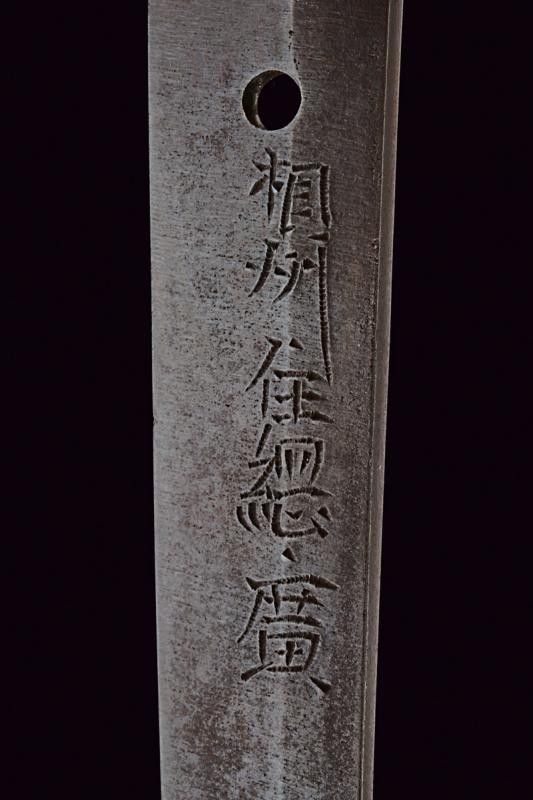 相州住總廣